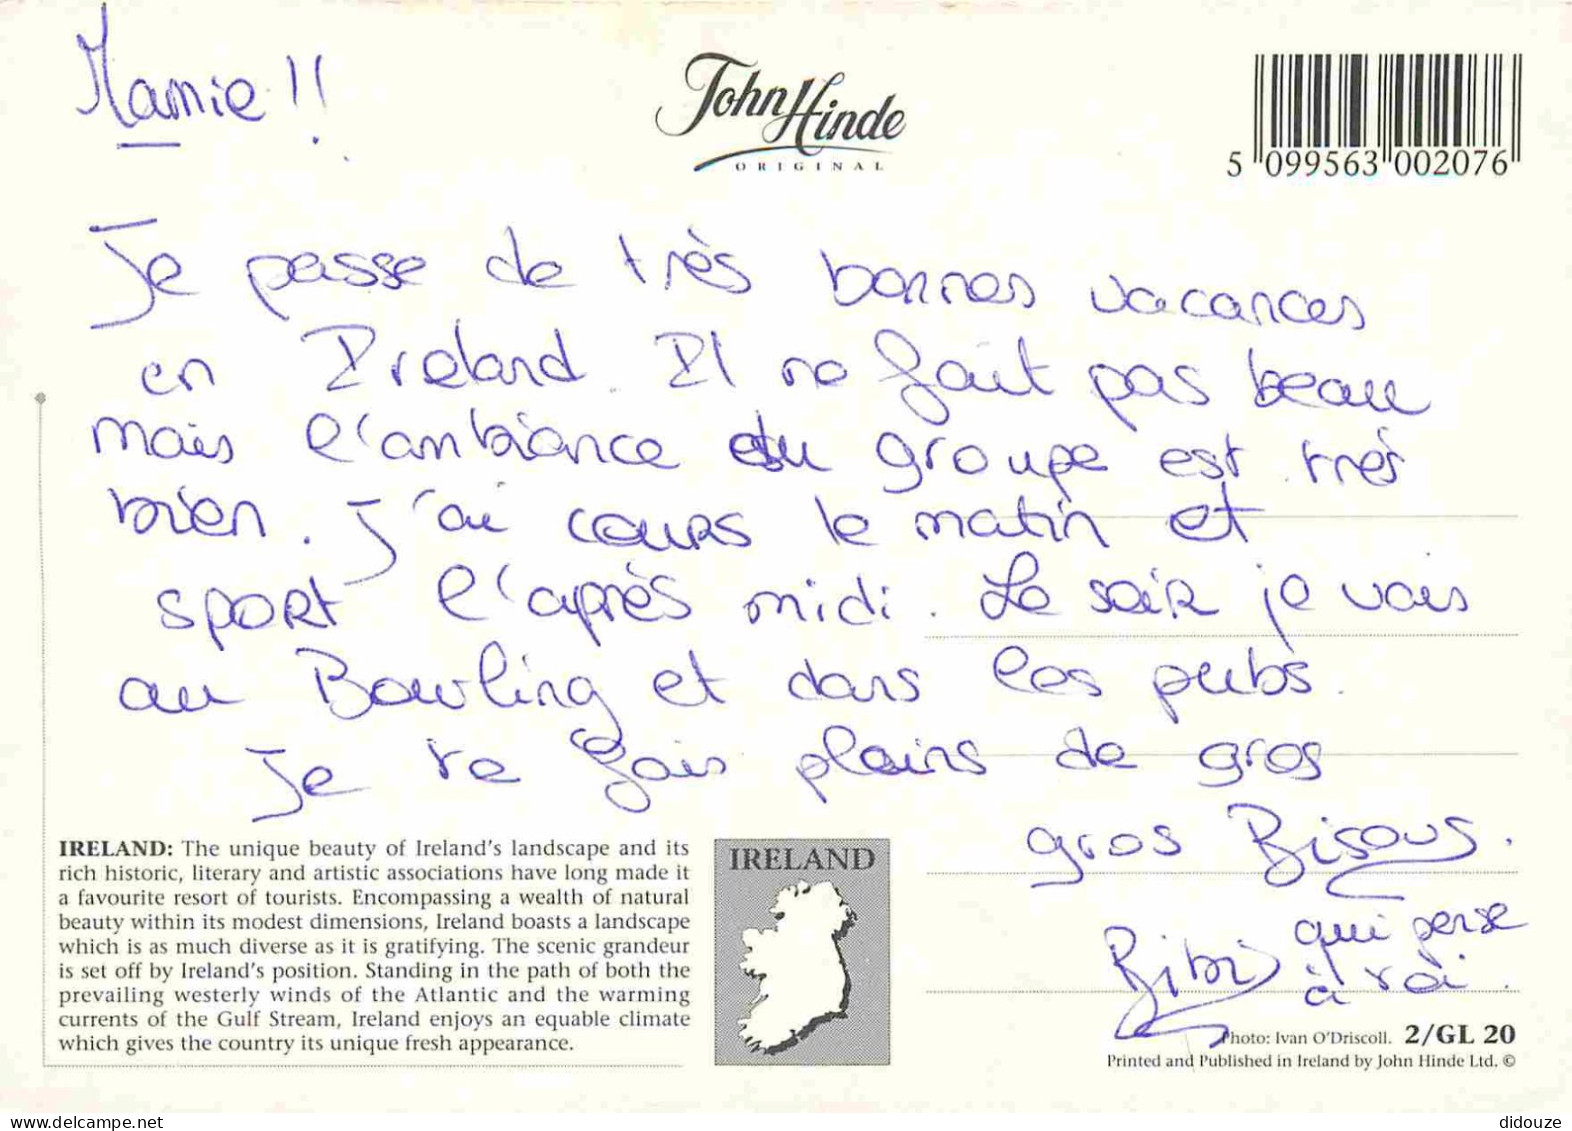 Mamie !!
John Hinde
ORIGINAL
5 099563 002076
Je passe de très bonnes vacances
en Ireland. Il ne fait pas beau
mais l'ambiance du groupe est très
bien. J'ai cours le matin et
sport l'après midi. Le soir je vais
au Bowling et dans les pubs.
Je te fais pleins de gros
gros Bisous.
Bibi qui pense
à toi.
IRELAND: The unique beauty of Ireland's landscape and its
rich historic, literary and artistic associations have long made it
a favourite resort of tourists. Encompassing a wealth of natural
beauty within its modest dimensions, Ireland boasts a landscape
which is as much diverse as it is gratifying. The scenic grandeur
is set off by Ireland's position. Standing in the path of both the
prevailing westerly winds of the Atlantic and the warming
currents of the Gulf Stream, Ireland enjoys an equable climate
which gives the country its unique fresh appearance.
IRELAND
Photo: Ivan O'Driscoll. 2/GL 20
Printed and Published in Ireland by John Hinde Ltd. ©
didouze